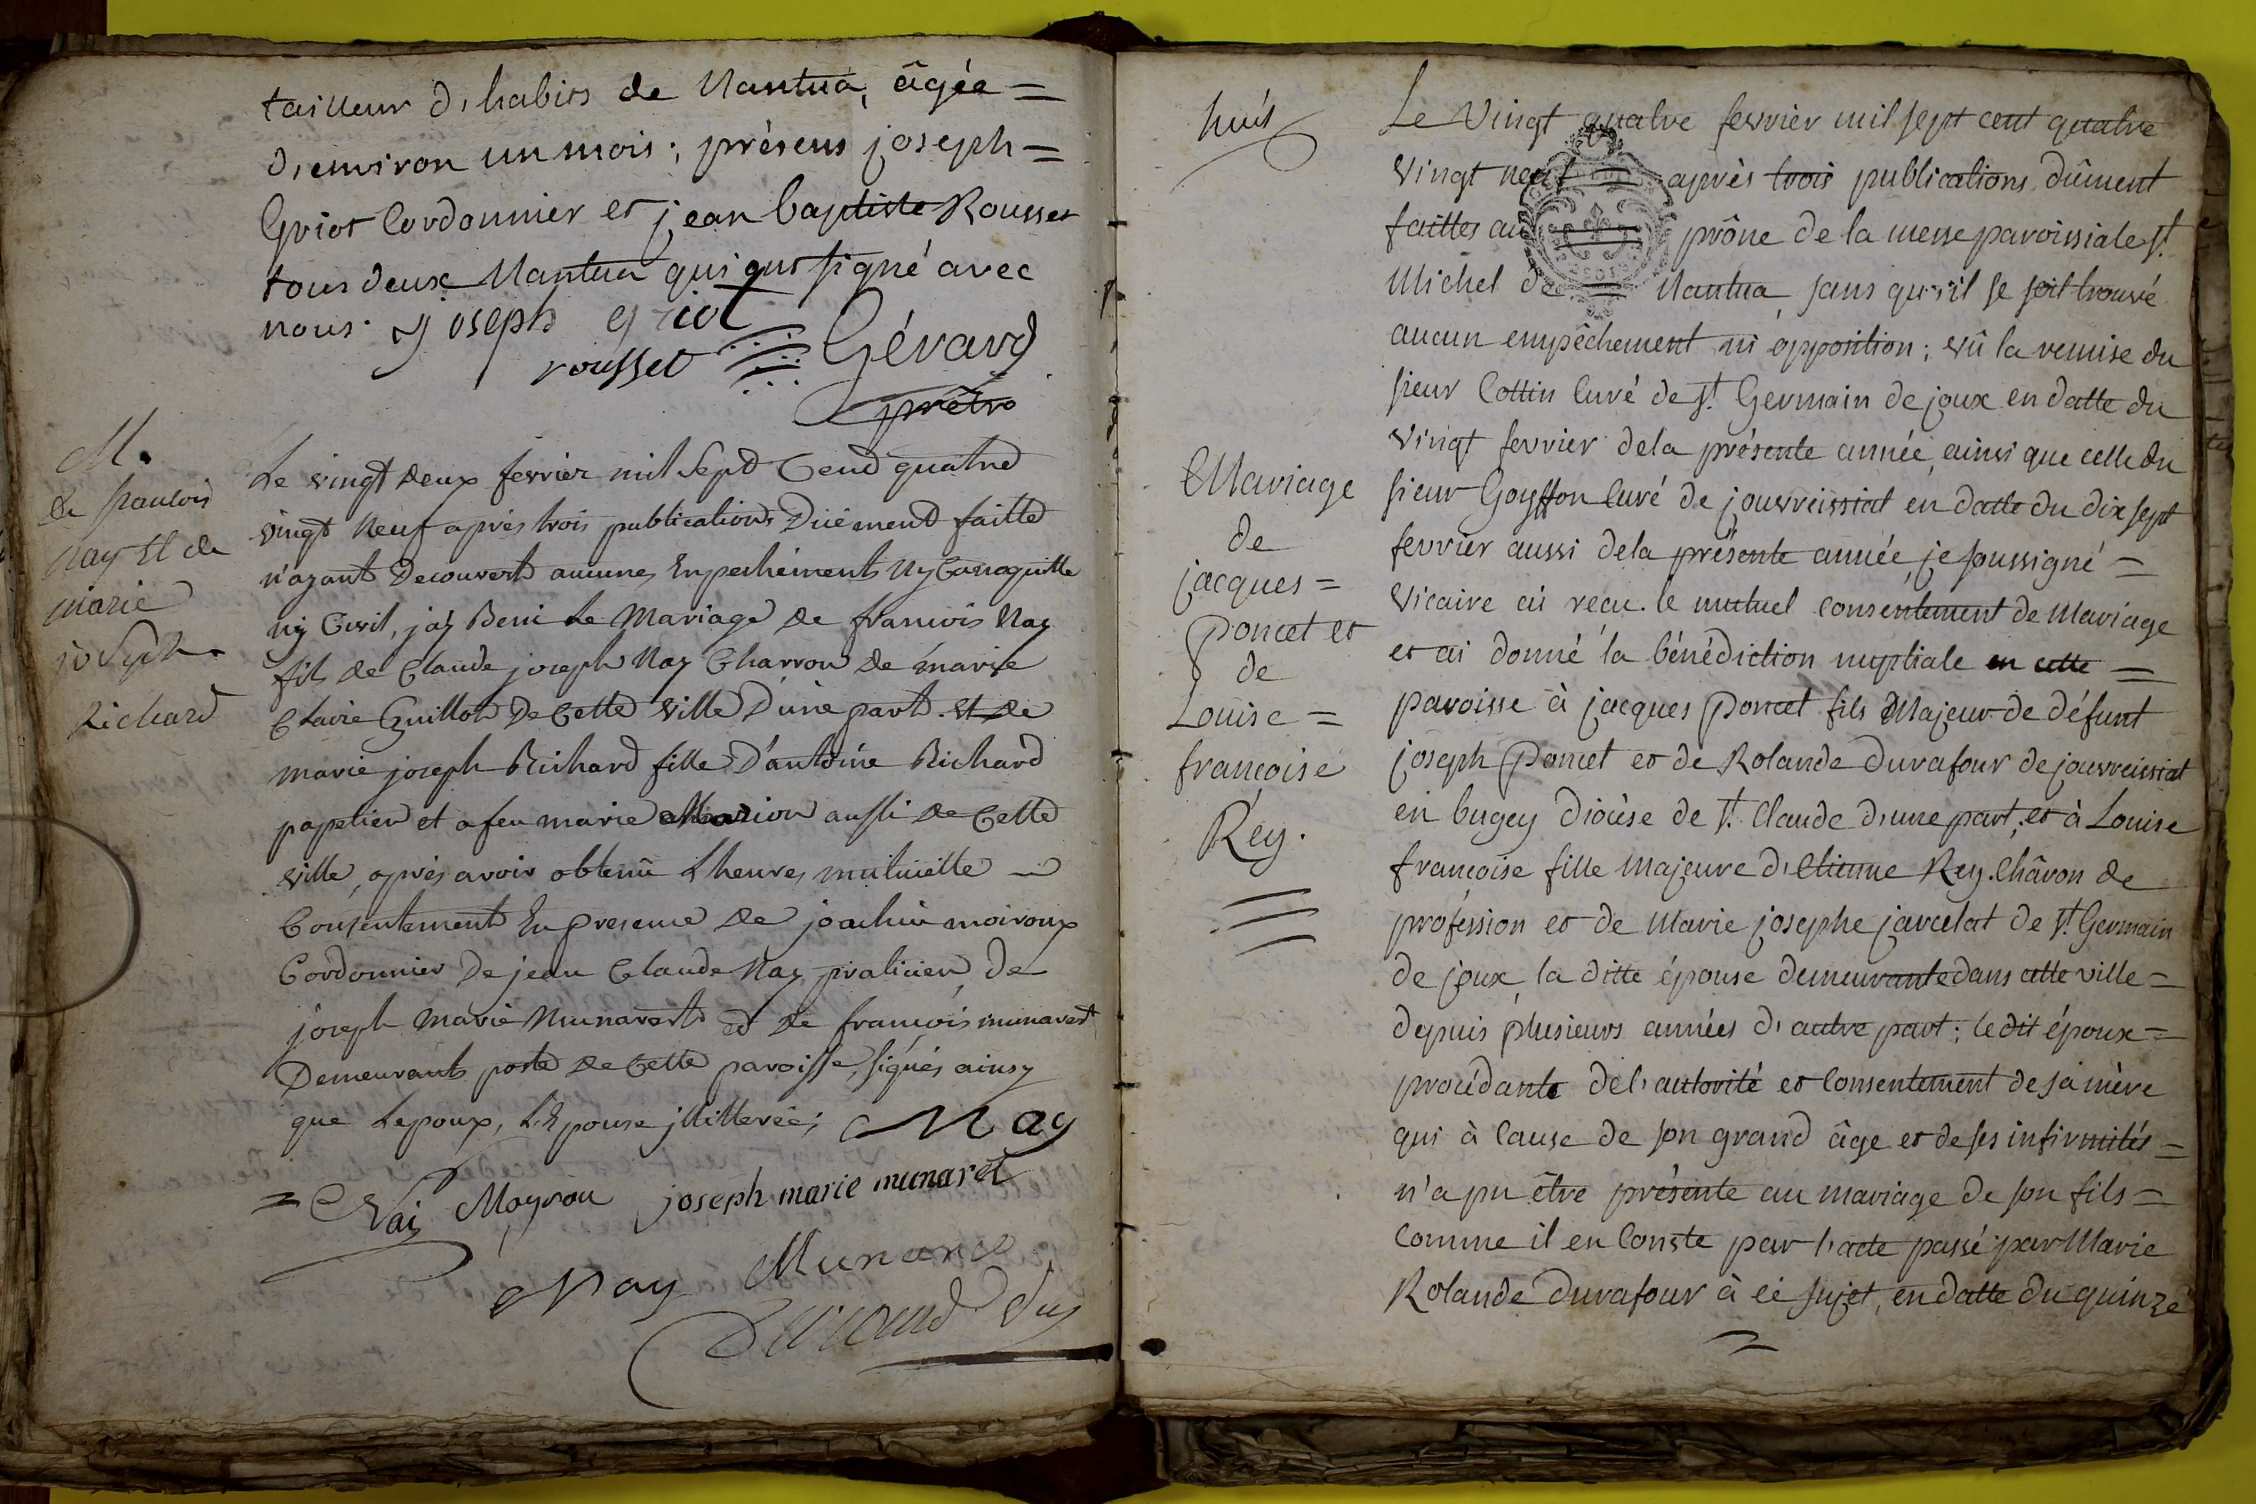 tailleur d'habits de Nantua, âgée =
d'environ un mois; présens joseph =
Griot Cordonnier et jean baptiste Rousset
tous deux Nantua qui ont signé avec
nous. joseph griot
rousset Gérard
prêtre
M.
de francois
Nay et de
marie
joseph
Richard
Le vingt deux fevrier mil sept Cend quatre
vingt Neuf apres trois publications Duëment faitte
n'ayant Decouvert aucunes Enpechéments Ny Canoquitte
ny Civil, jay Beni Le Mariage de francois Nay
fils de Claude joseph Nay Charron de marie
Clavie Guillot De Cette ville D'une part. et de
marie joseph Richard fille D'antoine Richard
papetier et a feu marie Marion aussi de Cette
ville, apres avoir obtenu Lheures mutuelle
Consentement En presence de joachim moiroux
Cordonnier De jean Claude Nay praticien, de
joseph marie Munaret et de francois munaret
Demeurants poste de Cette paroisse, signés ainsy
que Lepoux, L'Epouse jllitterée; Nay
= C Nai Moyrou joseph marie munaret
Nay Munaret
huit
Mariage
de
jacques =
Poncet et
de
Louise =
françoise
Rey.
Le Vingt quatre fevrier mil sept cent quatre
vingt neuf après trois publications dûment
faittes au prône de la messe paroissiale St.
Michel de Nantua, sans qu'il se soit trouvé
aucun empêchement ni opposition; vû la remise du
sieur Cottin Curé de St. Germain de joux en datte du
vingt fevrier dela présente année, ainsi que celle du
sieur Goyffon Curé de jouvreissiat en datte du dix sept
fevrier aussi dela présente année, je soussigné =
Vicaire ai reçu le mutuel consentement de Mariage
et ai donné la bénédiction nuptiale en cette =
paroisse à jacques Poncet fils Majeur de défunt
joseph Poncet et de Rolande Durafour de jouvreissiat
en bugey Diocèse de St. Claude d'une part; et à Louise
françoise fille majeure d'Etienne Rey. Châron de
profession et de Marie josephe jarcelat de St. Germain
de joux, la ditte épouse demeurante dans cette ville =
depuis plusieurs années d'autre part; le dit époux =
procédante del'autorité et Consentement de sa mère
qui à Cause de son grand âge et de ses infirmités =
n'a pu être présente au mariage de son fils =
Comme il en Conste par l'acte passé par Marie
Rolande Durafour à ce sujet, en datte du quinze